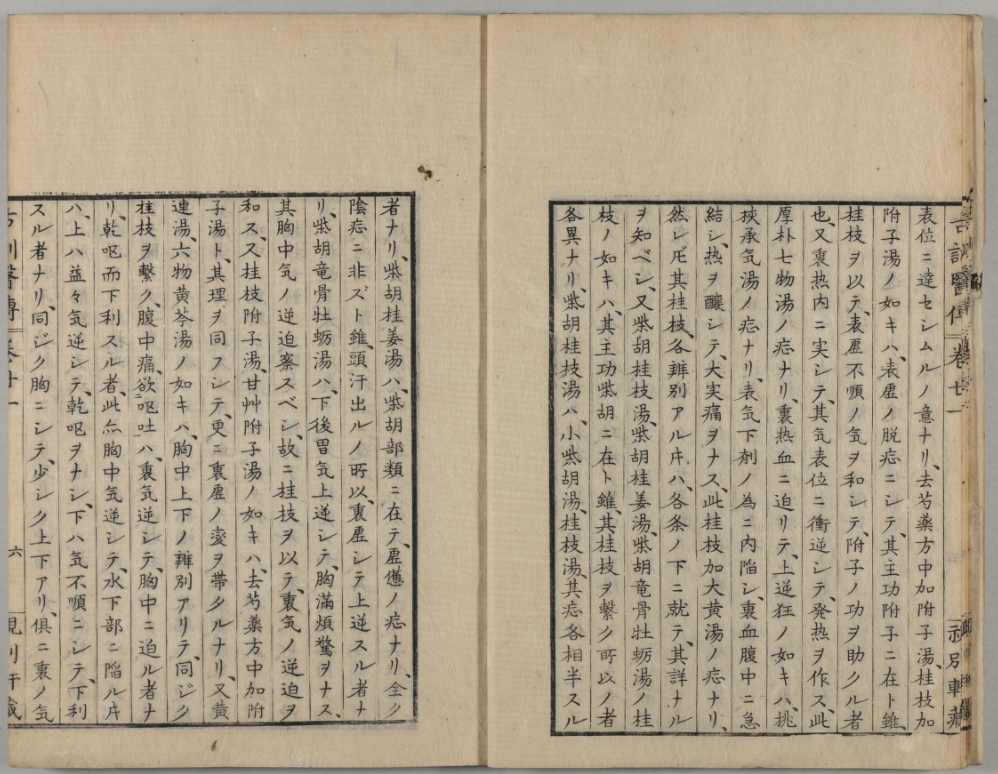 古訓醫傳 卷廿一
表位ニ達セシムルノ意ナリ、去芍藥方中加附子湯、桂枝加
附子湯ノ如キハ、表虚ノ脱㽷ニシテ、其主功附子ニ在ト雖、
桂枝ヲ以テ、表虚不順ノ気ヲ和シテ、附子ノ功ヲ助クル者
也、又裏熱内ニ実シテ、其気表位ニ衝逆シテ、発熱ヲ作ス、此
厚朴七物湯ノ㽷ナリ、裏熱血ニ迫リテ、上逆狂ノ如キハ、桃
挾承気湯ノ㽷ナリ、表気下剤ノ為ニ内陥シ、裏血腹中ニ急
結シ、熱ヲ釀シテ、大実痛ヲナス、此桂枝加大黄湯ノ㽷ナリ、
然レ𪜈其桂枝、各辨別アル𪜈ハ、各条ノ下ニ就テ、其詳ナル
ヲ知ベシ、又柴胡桂枝湯、柴胡桂姜湯、柴胡竜骨牡蛎湯ノ桂
枝ノ如キハ、其主功柴胡ニ在ト雖、其桂枝ヲ繋ク所以ノ者
各異ナリ、柴胡桂枝湯ハ、小柴胡湯、桂枝湯、其㽷各相半スル
者ナリ、柴胡桂姜湯ハ、柴胡部類ニ在テ、虚憊ノ㽷ナリ、全ク
陰㽷ニ非ズト雖、頭汗出ルノ所以、裏虚シテ上逆スル者ナ
リ、柴胡竜骨牡蛎湯ハ、下後胃気上逆シテ、胸滿煩驚ヲナス、
其胸中気ノ逆迫察スベシ、故ニ桂枝ヲ以テ、裏気ノ逆迫ヲ
和ス、又桂枝附子湯、甘艸附子湯ノ如キハ、去芍藥方中加附
子湯ト、其理ヲ同フシテ、更ニ裏虚ノ変ヲ帯タルナリ、又黄
連湯、六物黄芩湯ノ如キハ、胸中上下ノ辨別アリテ、同ジク
桂枝ヲ繋ク、腹中痛、欲呕吐ハ、裏気逆シテ、胸中ニ迫ル者ナ
リ、乾呕而下利スル者、此亦胸中気逆シテ、水下部ニ陥ル𪜈
ハ、上ハ益々気逆シテ、乾呕ヲナシ、下ハ気不順ニシテ、下利
スル者ナリ、同ジク胸ニシテ、少シク上下アリ、倶ニ裏ノ気
六